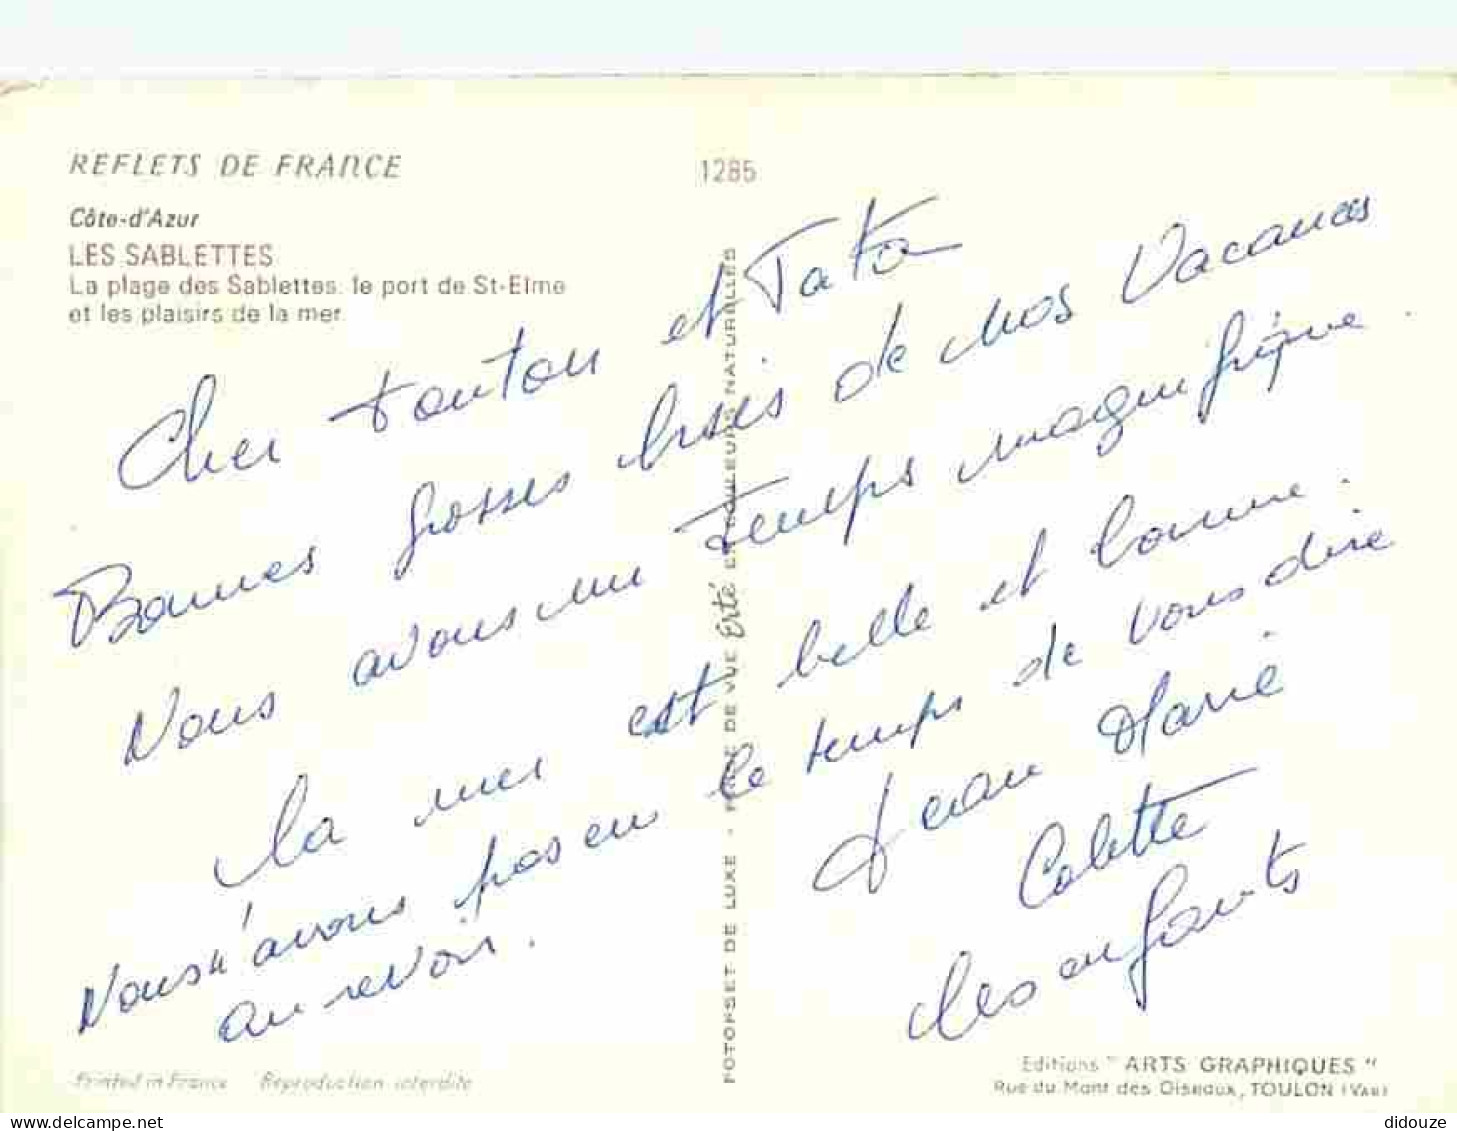 REFLETS DE FRANCE
1285
Côte-d'Azur
LES SABLETTES
La plage des Sablettes, le port de St-Elme
et les plaisirs de la mer
Cher tonton et Tata
Bonnes grosses bises de nos Vacances
Nous avons un temps magnifique.
la mer est belle et bonne.
Nous n'avons pas eu le temps de vous dire
au revoir.
Jean Marie
Colette
les enfants
FOTOFSET DE LUXE - PRISE DE VUE Erté EN COULEURS NATURELLES
Printed in France Reproduction interdite
Editions "ARTS GRAPHIQUES"
Rue du Mont des Oiseaux, TOULON (VAR)
delcampe.net
didouze